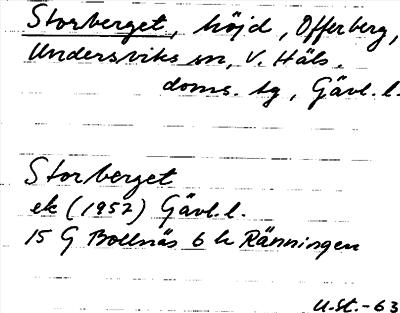 Storberget, höjd, Offerberg,
Undersviks sn, V. Häls.
doms. tg, Gävl. l.
Storberget
ek (1952) Gävl. l.
15 G Bollnäs 6 h Ränningen
U.St.-63